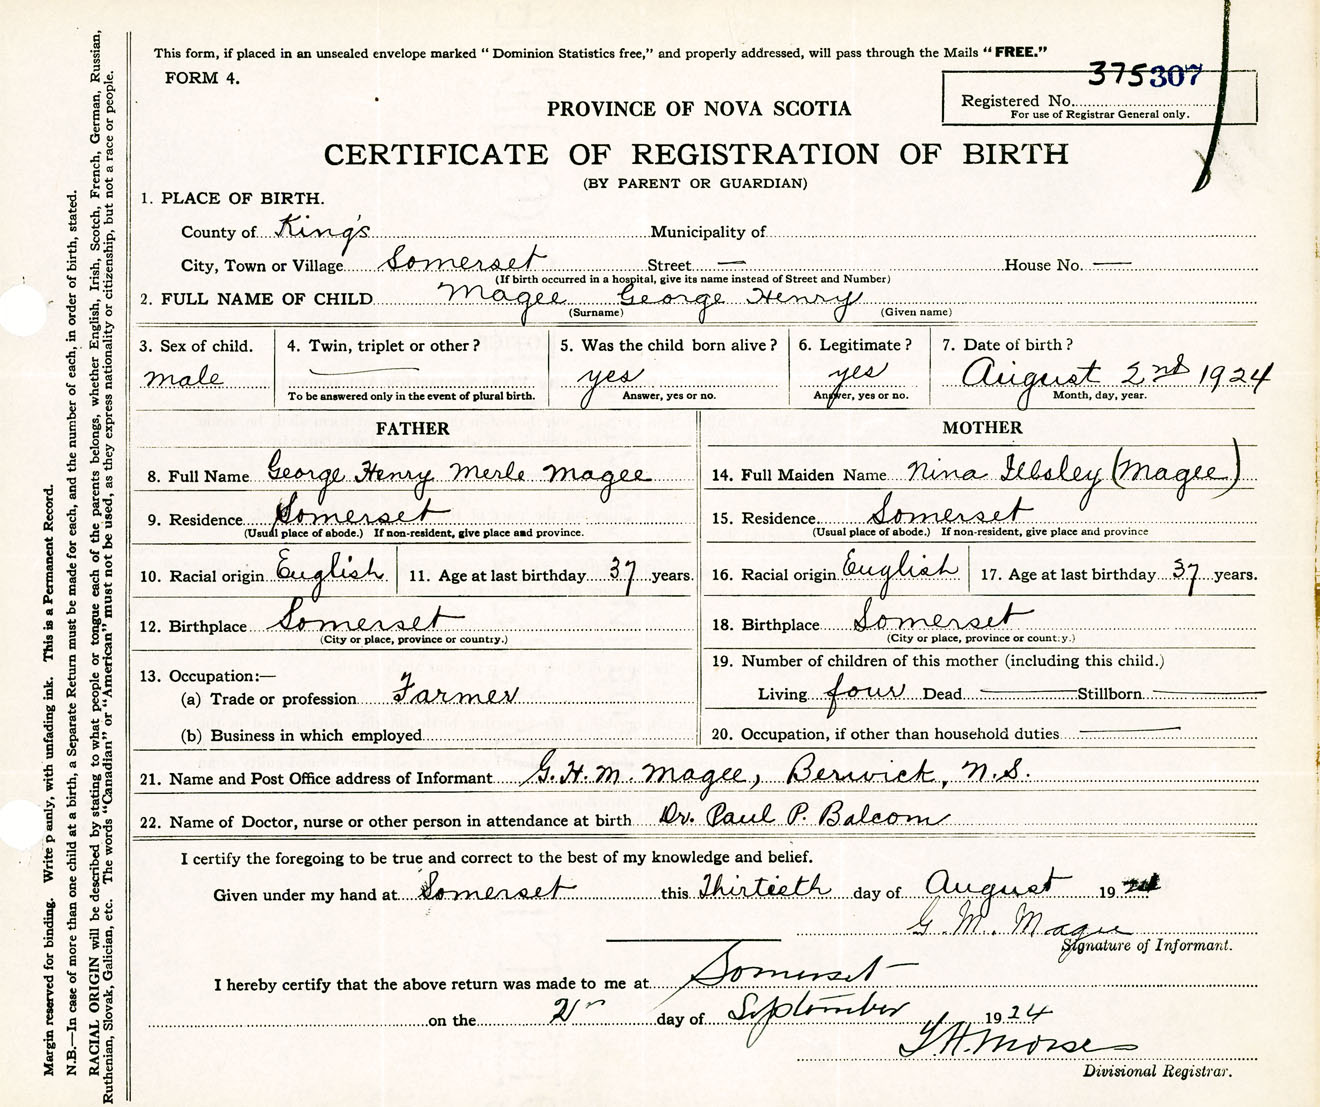 This form, if placed in an unsealed envelope marked " Dominion Statistics free," and properly addressed, will pass through the Mails "FREE."
FORM 4.
375307
Registered No.
For use of Registrar General only.
PROVINCE OF NOVA SCOTIA
CERTIFICATE OF REGISTRATION OF BIRTH
(BY PARENT OR GUARDIAN)
1. PLACE OF BIRTH.
County of King's Municipality of
City, Town or Village Somerset Street — House No. —
(If birth occurred in a hospital, give its name instead of Street and Number)
2. FULL NAME OF CHILD Magee George Henry
(Surname) (Given name)
3. Sex of child. 4. Twin, triplet or other? 5. Was the child born alive? 6. Legitimate? 7. Date of birth?
male — yes yes August 2nd 1924
To be answered only in the event of plural birth. Answer, yes or no. Answer, yes or no. Month, day, year.
FATHER MOTHER
8. Full Name George Henry Merle Magee 14. Full Maiden Name Nina Illsley (Magee)
9. Residence Somerset 15. Residence Somerset
(Usual place of abode.) If non-resident, give place and province. (Usual place of abode.) If non-resident, give place and province
10. Racial origin English 11. Age at last birthday 37 years. 16. Racial origin English 17. Age at last birthday 37 years.
12. Birthplace Somerset 18. Birthplace Somerset
(City or place, province or country.) (City or place, province or country.)
13. Occupation:— 19. Number of children of this mother (including this child.)
(a) Trade or profession Farmer Living four Dead — Stillborn —
(b) Business in which employed 20. Occupation, if other than household duties —
21. Name and Post Office address of Informant G. H. M. Magee, Berwick, N.S.
22. Name of Doctor, nurse or other person in attendance at birth Dr. Paul P. Balcom
I certify the foregoing to be true and correct to the best of my knowledge and belief.
Given under my hand at Somerset this Thirtieth day of August 19 24
G. M. Magee
Signature of Informant.
I hereby certify that the above return was made to me at Somerset
on the 2 day of September 19 24
Morse
Divisional Registrar.
Margin reserved for binding. Write p ainly, with unfading ink. This is a Permanent Record.
N.B.—In case of more than one child at a birth, a Separate Return must be made for each, and the number of each, in order of birth, stated.
RACIAL ORIGIN will be described by stating to what people or tongue each of the parents belongs, whether English, Irish, Scotch, French, German, Russian,
Ruthenian, Slovak, Galician, etc. The words "Canadian" or "American" must not be used, as they express nationality or citizenship, but not a race or people.